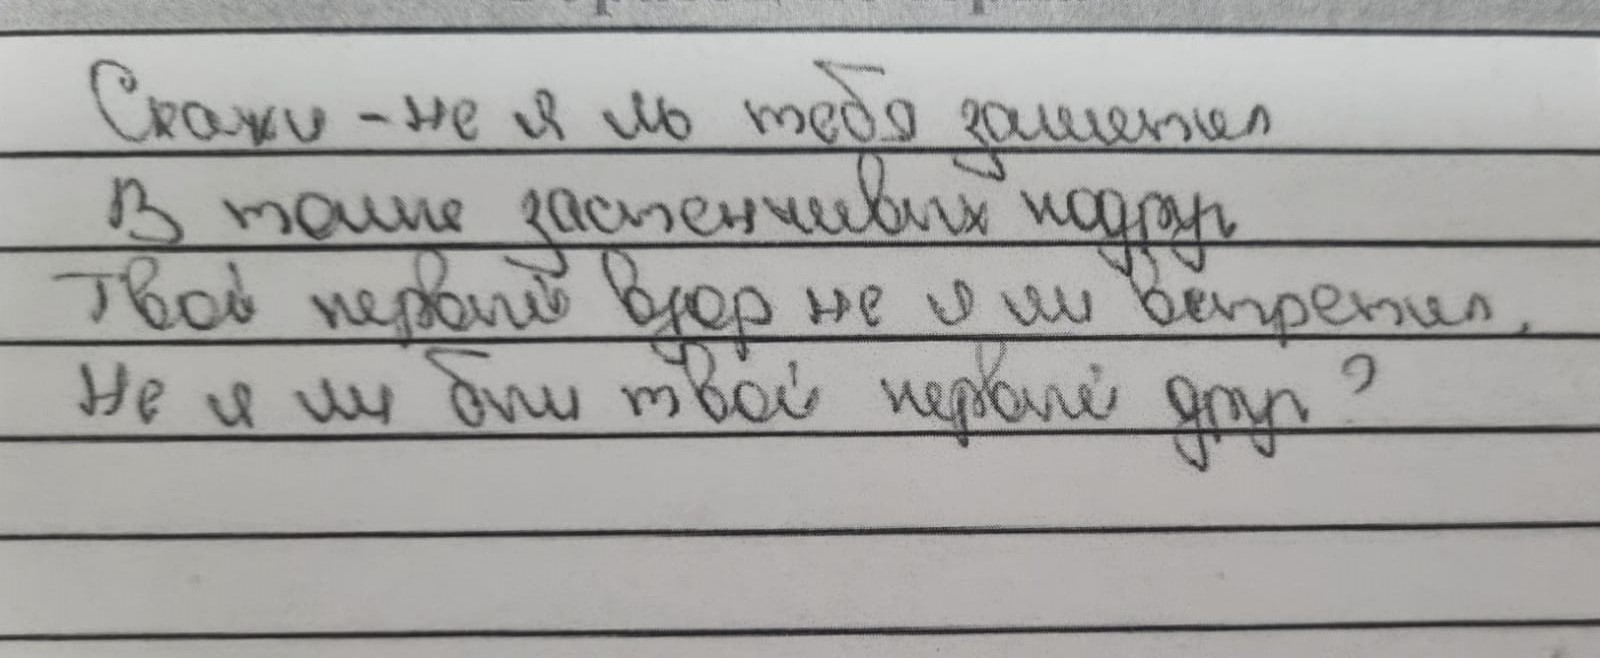 Скажи - не я ль тебя заметил
В толпе застенчивых подруг
Твой первый взор не я ли встретил,
Не я ли был твой первый друг?